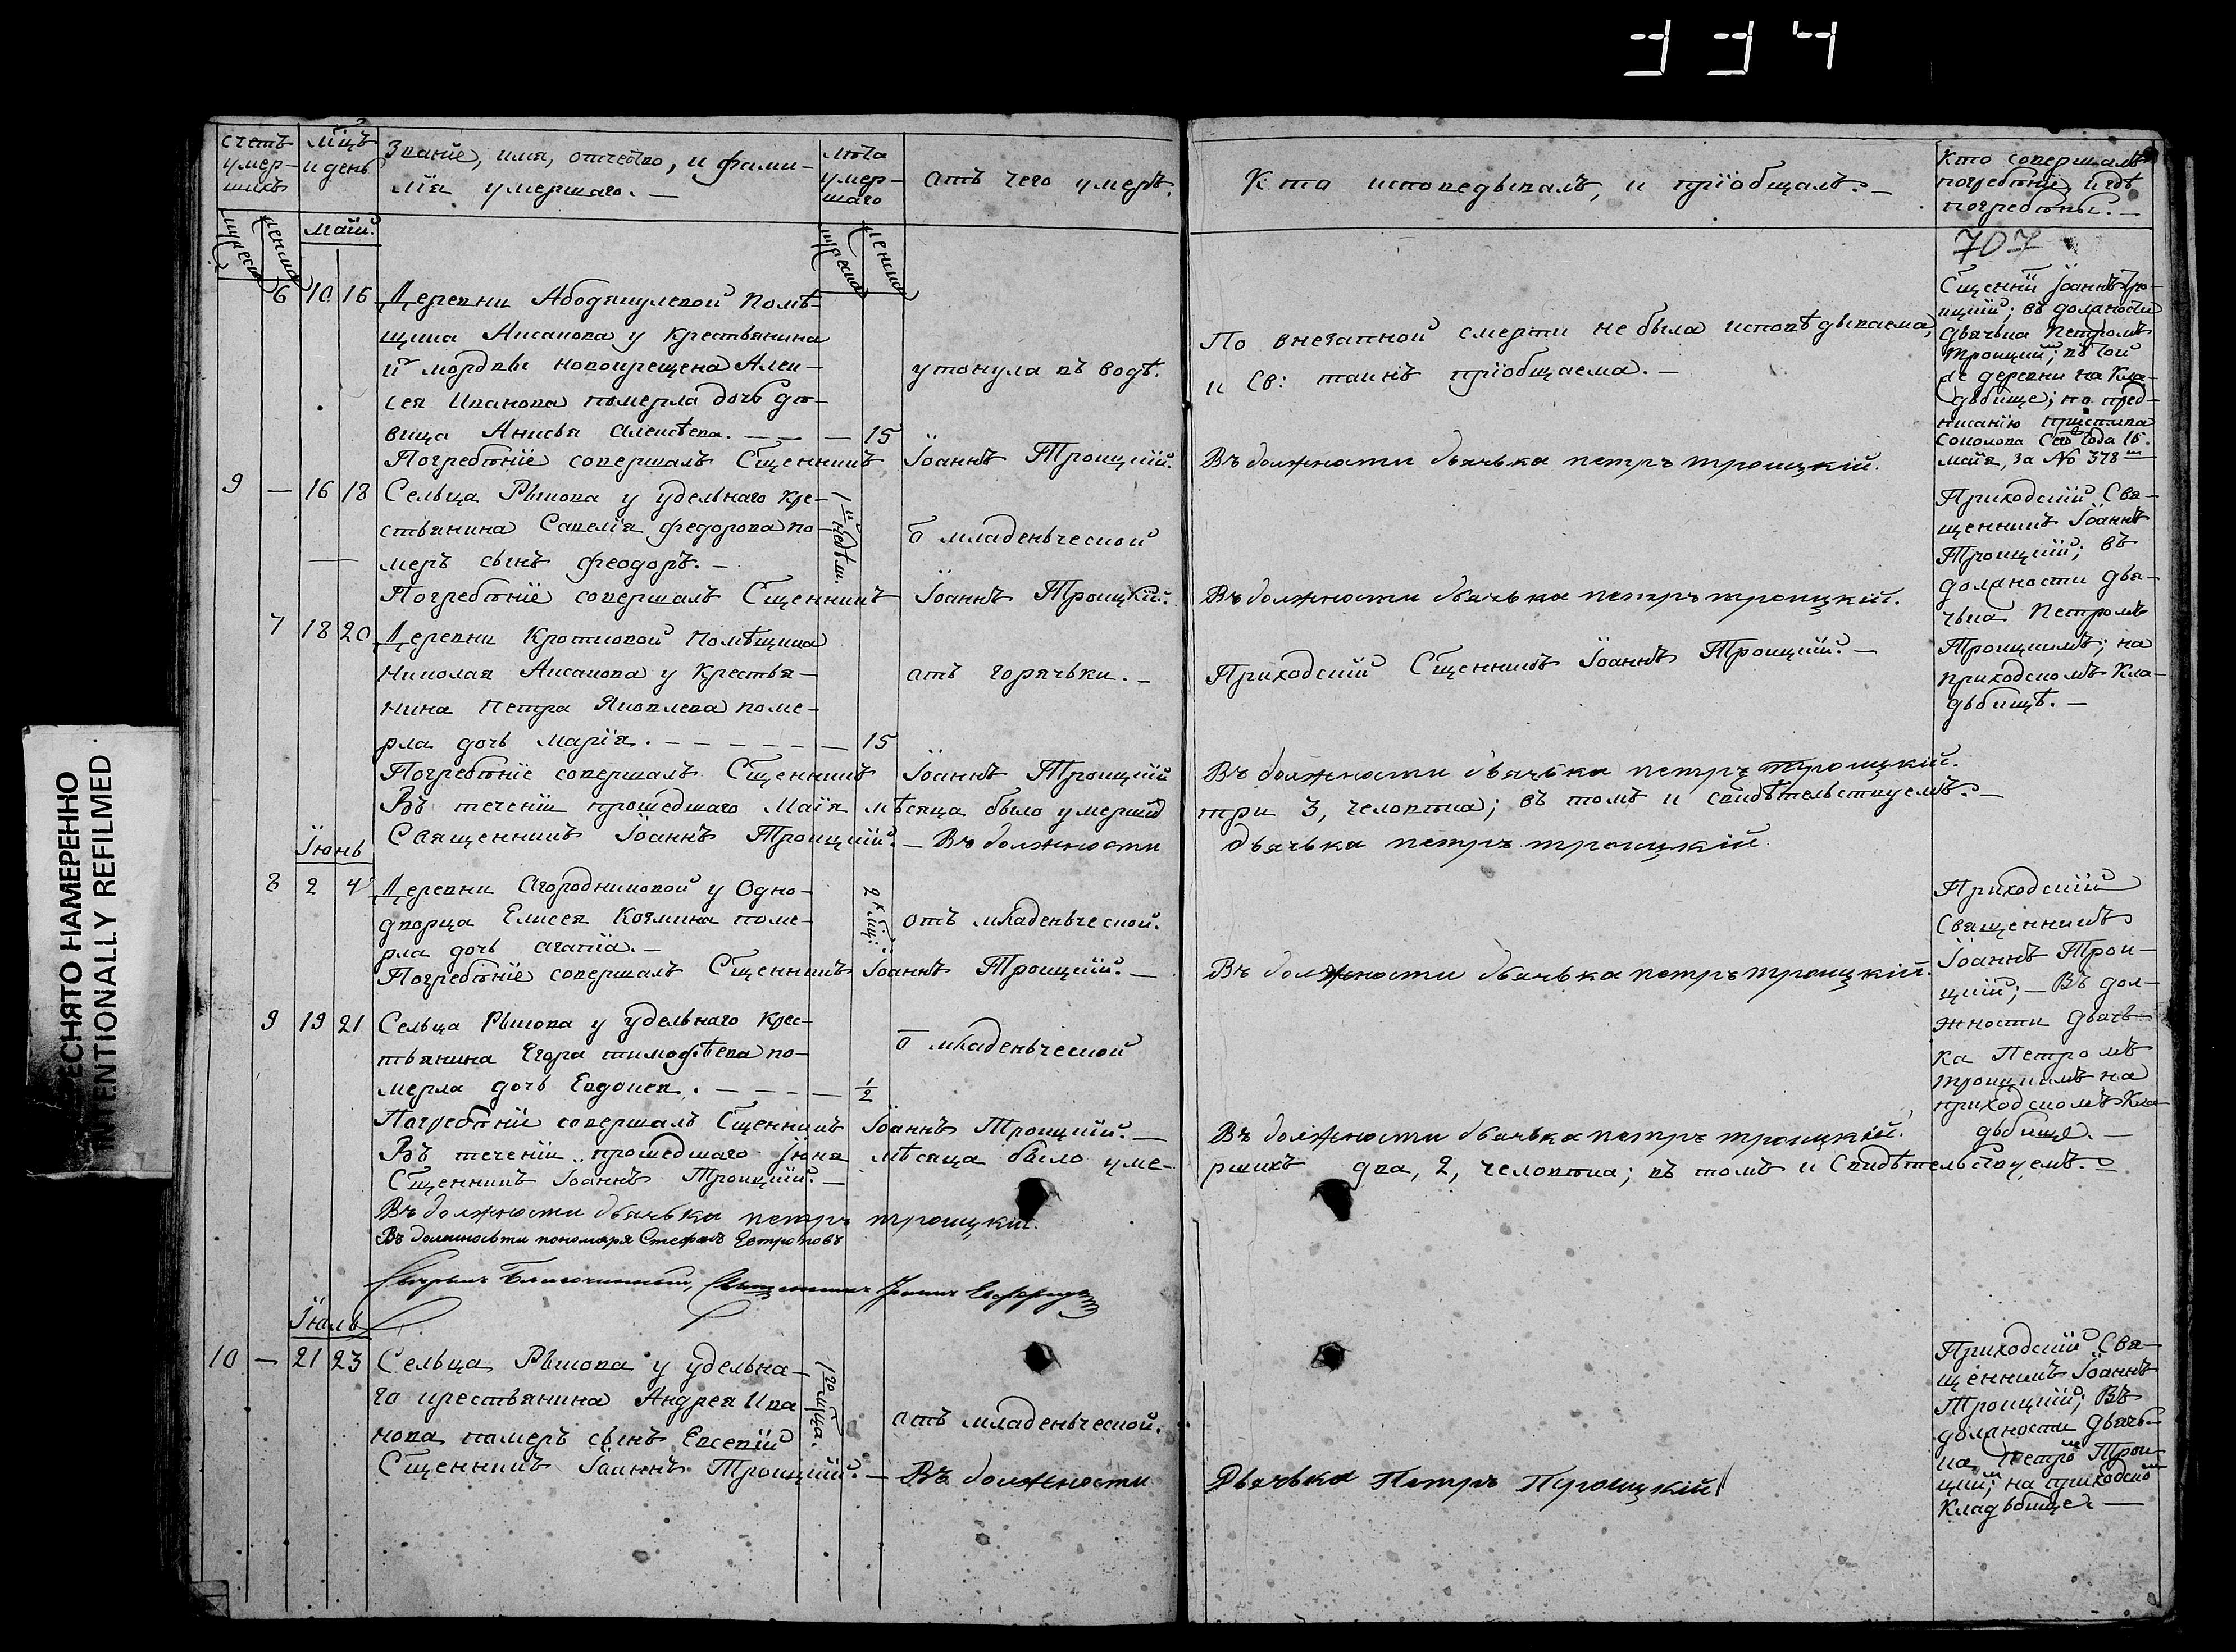 334
счетъ умер-шихъ
мцъ и день
Званіе, имя, отчество, и фами-
лія умершаго. —
лѣта умер-шаго
отъ чего умеръ.
Кто исповедывалъ, и пріобщалъ. —
Кто совершалъ
погребеніе, и гдѣ
погребены. —
707
мужеска
женска
Маій.
мужеска
женска
6 10 16 Деревни Абодяшулевой помѣ-
щика Аксакова у крестьянина
и мордвы новокрещена Алек-
сея Иванова померла дочь дѣ-
вица Анисья Алексѣева. — — — 15
утонула въ водѣ.
По внезапной смерти не была исповѣдываема,
и Св: таинъ пріобщаема. —
Сщенникъ Іоаннъ Тро-
ицкій; въ должности
дьячька Петромъ
Троицкимъ; въ той
же деревни на кла-
дьбище; по пред-
писанію пристава
Соколова сего года 16.
майя, за № 378м
Погребеніе совершалъ Сщенникъ Іоаннъ Троицкій.
Въ должности дьячька петръ троицкій.
9 — 16 18 Сельца Рышова у удельнаго кре-
стьянина Савелія федорова по-
меръ сынъ феодоръ. —
1й недѣл.
о младеньческой
Приходскій Свя-
щенникъ Іоаннъ
Троицкій; въ
должности дья-
чька Петромъ
Троицкимъ; на
приходскомъ кла-
дьбищѣ. —
Погребеніе совершалъ Сщенникъ Іоаннъ Троицкій.
Въ должности дьячька петръ троицкій.
7 18 20 Деревни Кротковой помѣщика
Николая Аксакова у крестья-
нина Петра Яковлева поме-
рла дочь Марія. — — — — — — 15
отъ горячьки. —
Приходскій Сщенникъ Іоаннъ Троицкій. —
Погребеніе совершалъ Сщенникъ Іоаннъ Троицкій
Въ должности дьячька петръ троицкій.
Въ теченіи прошедшаго Маія мѣсяца было умерший
три 3, человека; въ томъ и свидѣтельствуемъ. —
Священникъ Іоаннъ Троицкій. — Въ должности
дьячька петръ троицкій.
Іюнь
8 2 4 Деревни Агородниковой у Одно-
дворца Елисея Козмина поме-
рла дочь Агапіа. —
2х мц:
отъ младеньческой.
Приходскій
Священникъ
Іоаннъ Трои-
цкій; — Въ дол-
жности дьячь-
ка Петромъ
Троицкимъ на
приходскомъ кла-
дьбище. —
Погребеніе совершалъ Сщенникъ Іоаннъ Троицкій. —
Въ должности дьячька петръ троицкій.
9 19 21 Сельца Рышова у удельнаго крес-
тьянина Егора тимофѣева по-
мерла дочь Евдокея. — — — — 1/2
о младеньческой
Погребеніе совершалъ Сщенникъ Іоаннъ Троицкій. —
Въ должности дьячька петръ троицкій.
Въ теченіи прошедшаго Іюня мѣсяца было уме-
ршихъ два, 2, человека; въ томъ и Свидѣтельствуемъ. —
Сщенникъ Іоаннъ Троицкій. —
Въ должности дьячька петръ троицкій.
Въ должности пономаря Стефанъ Евтроповъ
Благочинный, Священникъ
Іюль
10 — 21 23 Сельца Рышова у удельна-
го крестьянина Андрея Ива
нова померъ сынъ Евсевій
1го мца.
отъ младеньческой.
Приходскій Свя-
щенникъ Іоаннъ
Троицкій; Въ
должности дьячь-
ка, Петром Трои
цким; на приходско
кладьбище. —
Сщенникъ Іоаннъ Троицкій. — Въ должности
Дьячька Петръ Троицкій
ЕСНЯТО НАМЕРЕННО
INTENTIONALLY REFILMED